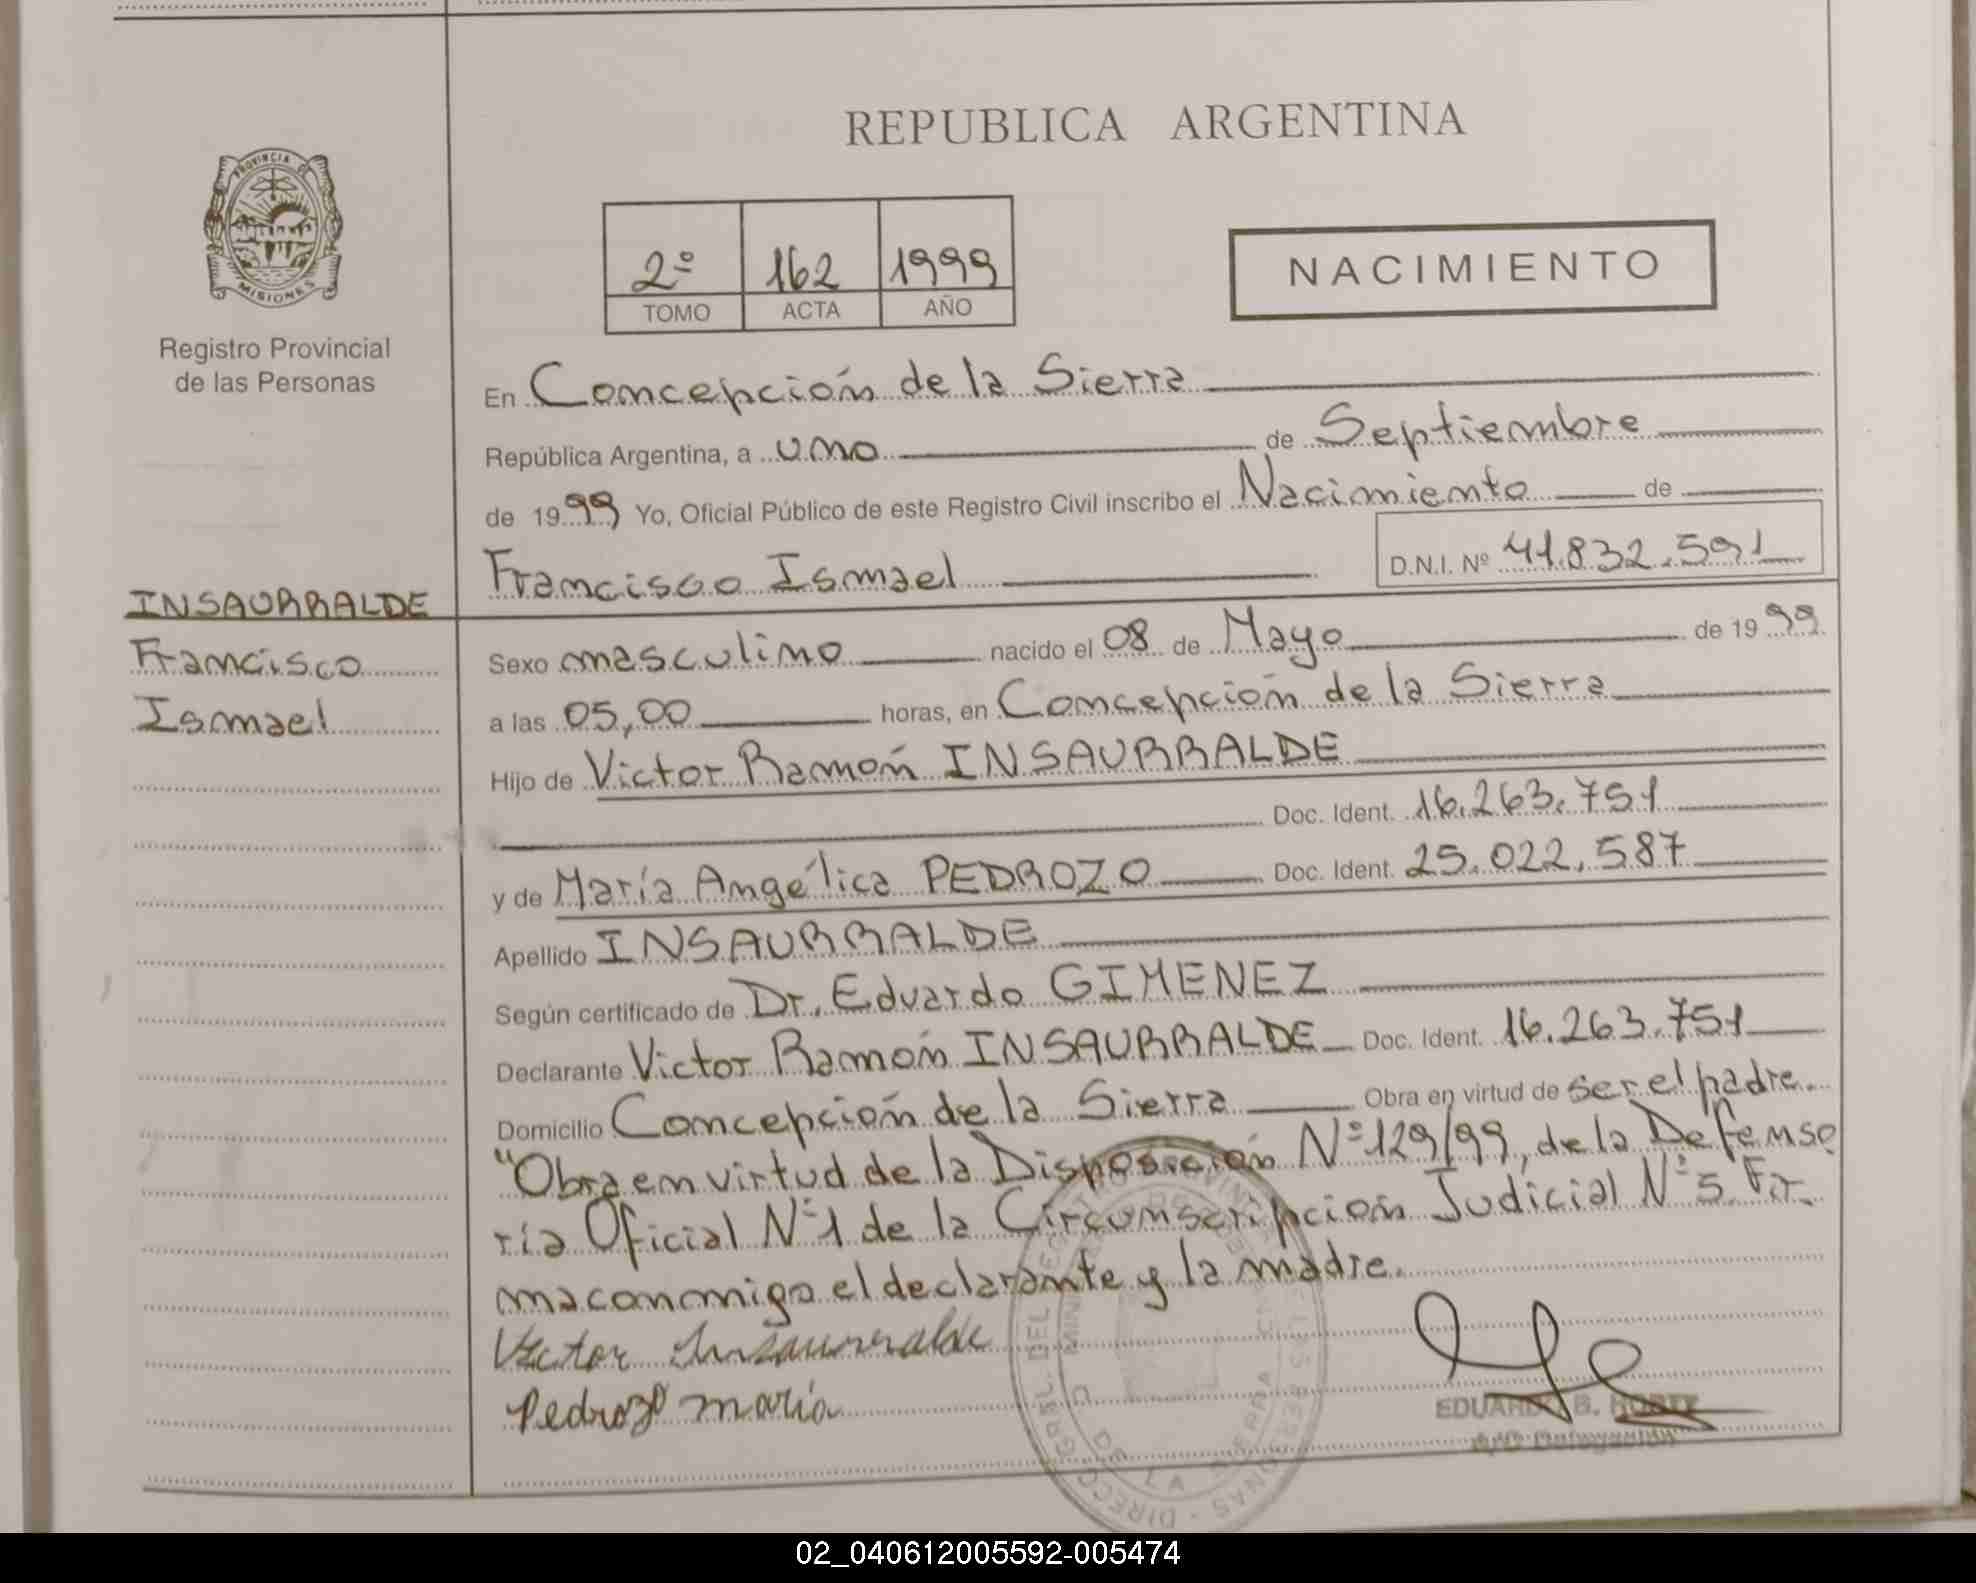 REPUBLICA ARGENTINA
PROVINCIA DE
MISIONES
Registro Provincial
de las Personas
2º 162 1999
TOMO ACTA AÑO
NACIMIENTO
En Concepción de la Sierra
República Argentina, a uno de Septiembre
de 1999 Yo, Oficial Público de este Registro Civil inscribo el Nacimiento de
Francisco Ismael D.N.I. Nº 41.832.591
INSAURRALDE
Francisco
Ismael
Sexo masculino nacido el 08 de Mayo de 1999
a las 05,00 horas, en Concepción de la Sierra
Hijo de Victor Ramón INSAURRALDE
Doc. Ident. 16.263.751
y de María Angélica PEDROZO Doc. Ident. 25.022.587
Apellido INSAURRALDE
Según certificado de Dr. Eduardo GIMENEZ
Declarante Victor Ramón INSAURRALDE Doc. Ident. 16.263.751
Domicilio Concepción de la Sierra Obra en virtud de ser el padre.
"Obra en virtud de la Disposición Nº 129/99, de la Defenso
ría Oficial Nº 1 de la Circunscripción Judicial Nº 5. Fir
ma conmigo el declarante y la madre.
Victor Insaurralde
Pedrozo maría
EDUARDO B.
A/C Delegación
02_040612005592-005474